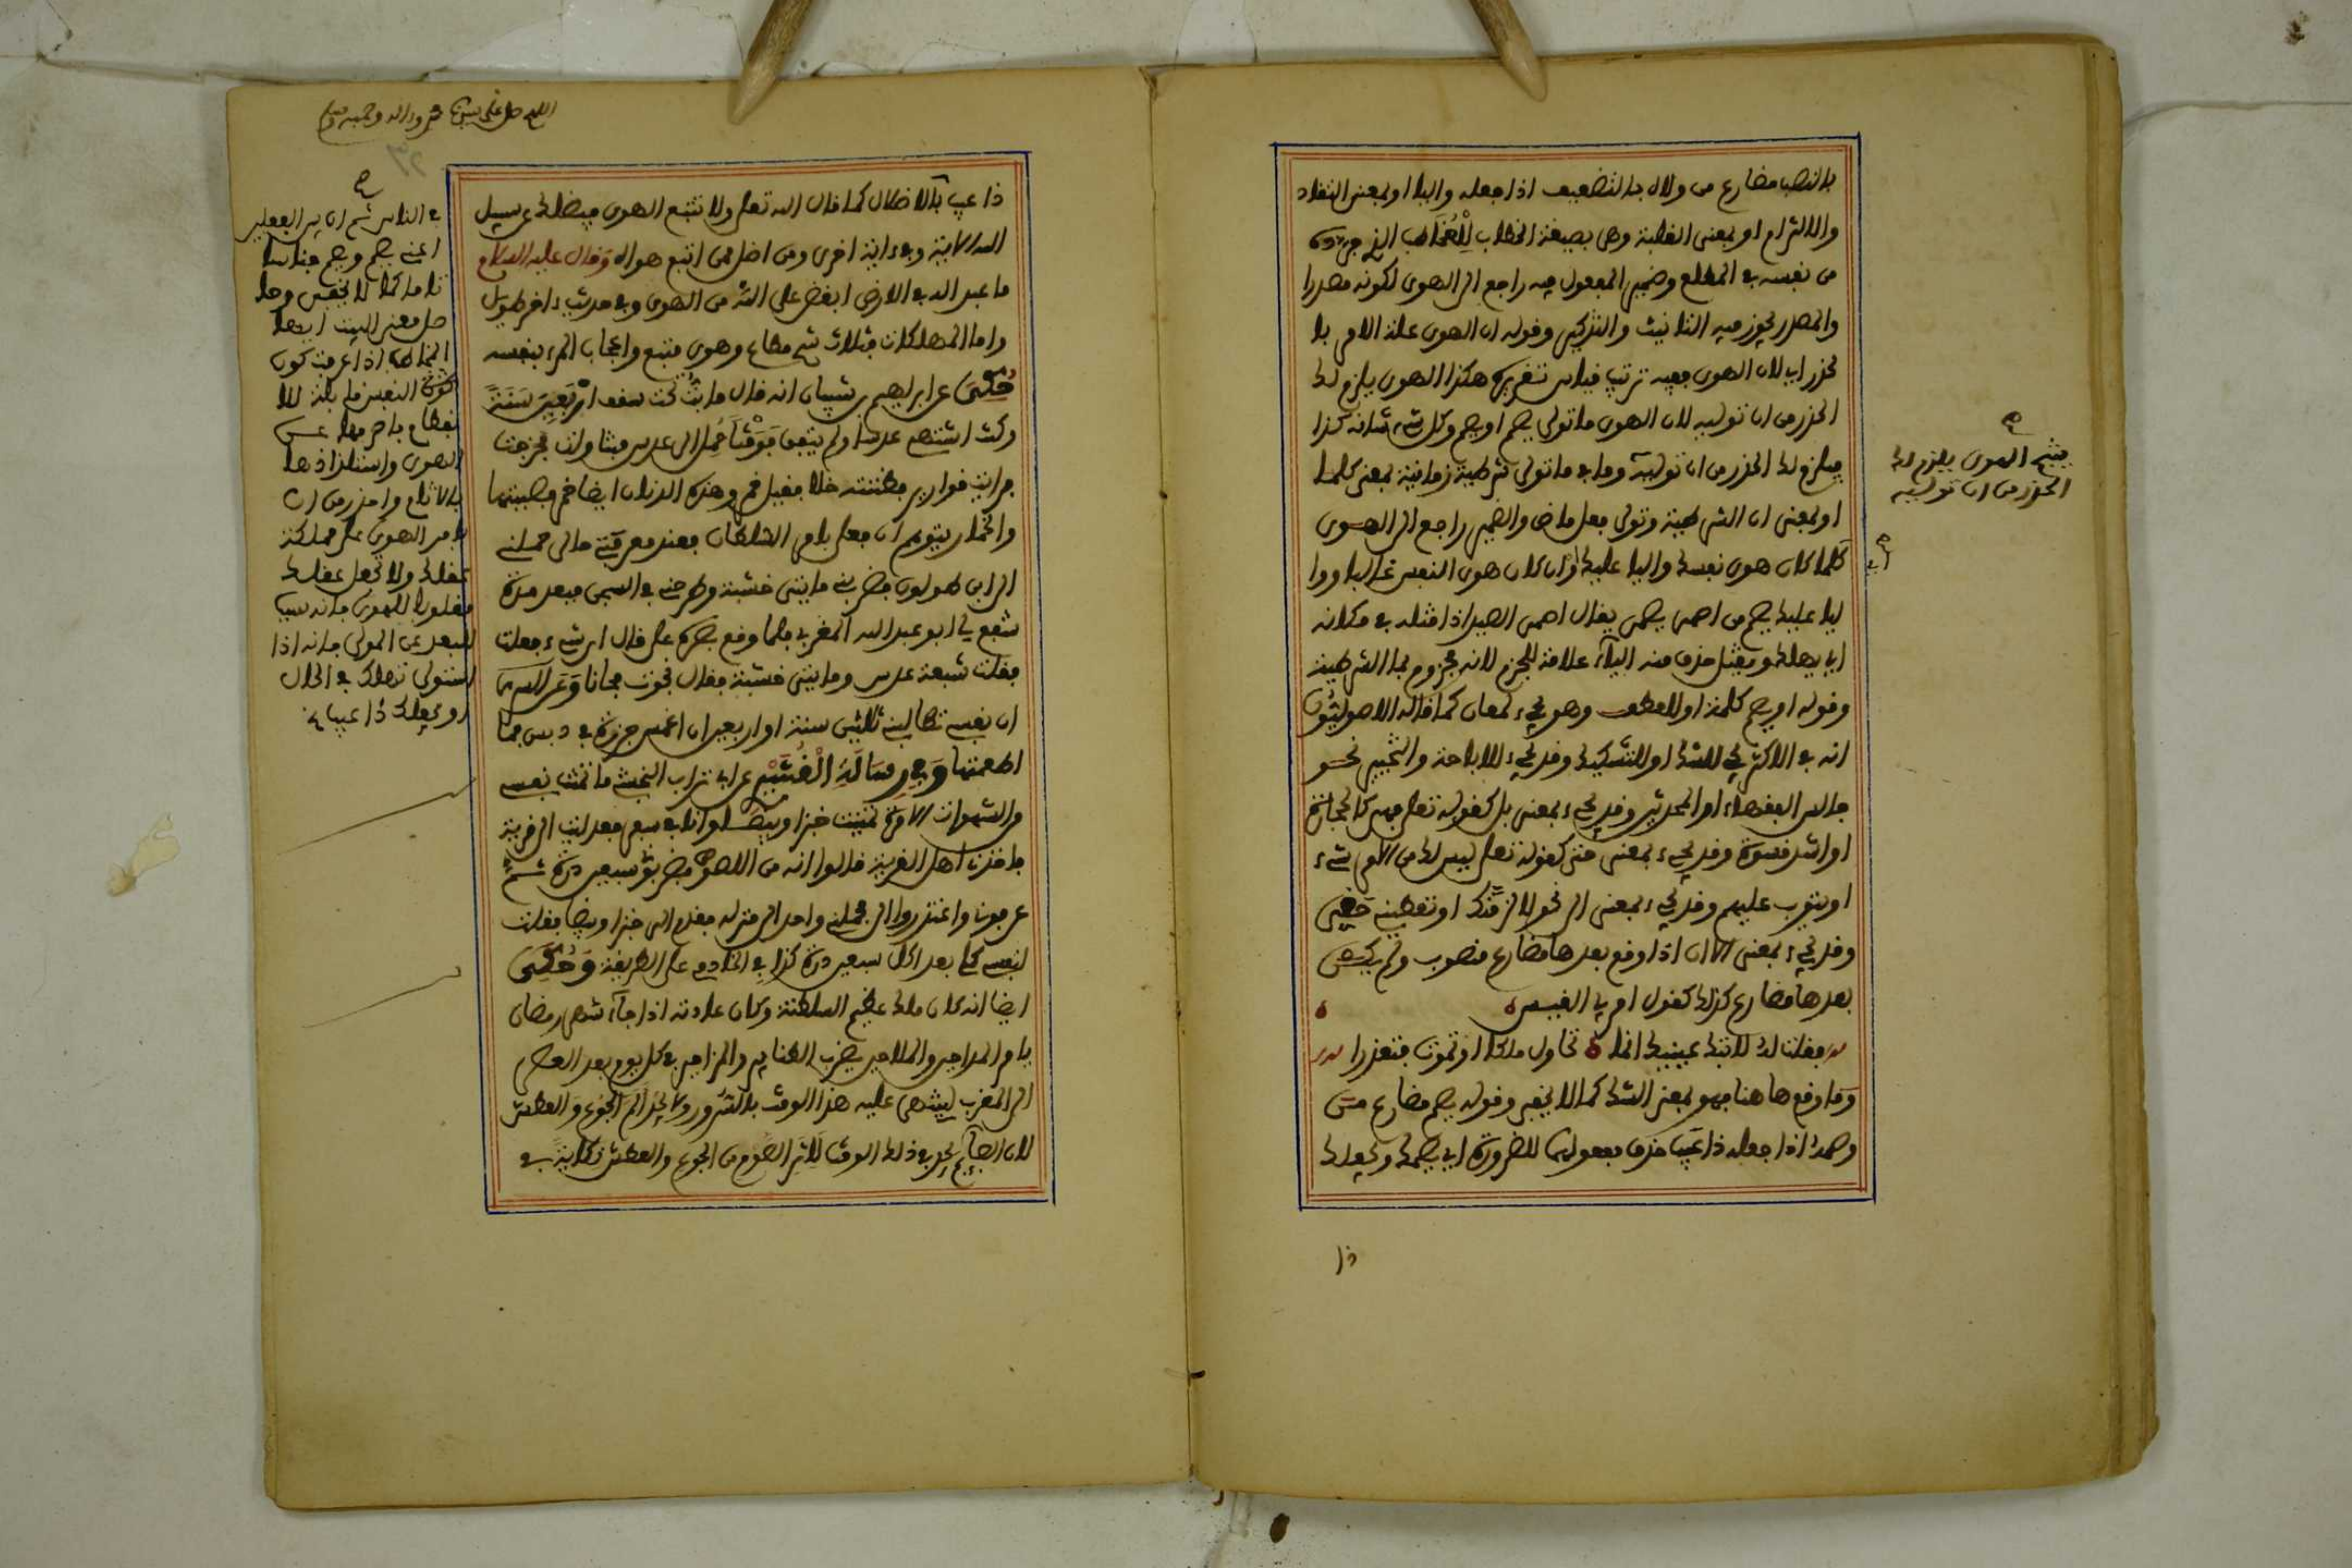 بالنصب مضارع من ولاه بالتضعيف اذا جعله واليا او بمعنى التقلد
والالتزام او بمعنى الغلبة وهى بصيغة الخطاب للمخاطب الذي جرده
من نفسه في المطلع وضمير المفعول فيه راجع الى الهوى لكونه مصدرا
والمصدر يجوز فيه التانيث والتذكير وقوله ان الهوى علة الامر بال
حذر اى لان الهوى ففيه ترتيب قياس تقريره هكذا الهوى يلزم لك
الحذر من ان توليه لان الهوى ما تولى يصم او يصم وكل شيء شانه كذا
فيلزم لك الحذر من ان توليه وما في ما تولى شرطية زمانية بمعنى كلما
او بمعنى ان الشرطية وتولى فعل ماض والضمير راجع الى الهوى
كلما كان هوى نفسك واليا عليك او ان كان هوى النفس غالبا ووا
ليا عليك يصم من اصمى يصمى يقال اصمى الصيد اذا قتله في مكانه
اى يهلك ويقتل حذف منه الياء علامة للجزم لانه مجزوم بما الشرطية
وقوله او يصم كلمة او للعطف وهو يجيء لمعان كما قاله الاصوليون
انه في الاكثر يجي للشك او للتشكيك وقد يجيء للاباحة والتخيير نحو
جالس الفقهاء او المحدثين وقد يجيء بمعنى بل كقوله تعلى فهى كالحجارة
او اشد قسوة وقد يجيء بمعنى حتى كقوله تعلى ليس لك من الامر شيء
او يتوب عليهم وقد يجيء بمعنى الى نحو لالزمنك او تعطيني حقي
وقد يجيء بمعنى الا ان اذا وقع بعدها مضارع منصوب ولم يكن
بعدها مضارع كذلك كقول امرئ القيس
فقلت له لا تبك عينيك انما ۵ نحاول ملكا او نموت فنعذرا
وما وقع هاهنا فهو بمعنى الشك كما لا يخفى وقوله يصم مضارع من
وصمه اذا جعله ذا عيب حذف مفعولهما للضرورة اى يصمك ويجعلك
ذا
يثبت الهوى يلزم لك
الحذر من ان توليه
اللهم صل على سيدنا محمد واله وصحبه وسلم
ذا عيب بالاضلال كما قال الله تعلى ولا تتبع الهوى فيضلك عن سبيل
الله الاية وفي ءاية اخرى ومن اضل ممن اتبع هواه وقال عليه السلام
ما عبد اله في الارض ابغض على الله من الهوى وفي حديث ءاخر طويل
واما المهلكات فثلاث شح مطاع وهوى متبع واعجاب المرء بنفسه
حكى عن ابراهيم بن شيبان انه قال ما بت تحت سقف اربعين سنة
وكنت اشتهي عدسا ولم يتفق فوقتا حمل الى عدس فتناولت فخرجت
فرايت قوارير فظننته خلا فقيل خمر وهذه الدنان ايضا خمر فصببتها
والخمار يتوهم ان فعلى بامر السلطان فعند معرفتى حالى حملني
الى ابن طولون فضربني مايتي خشبة وطرحني في السجن فبعد مدة
شفع لي ابو عبد الله المغربي فلما وقع بصره على قال اى شيء فعلت
فقلت شبعة عدس ومايتي خشبة فقال نجوت مجانا وعن السرى
ان نفسي تطالبني ثلثين سنة او اربعين ان اغمس جزرة في دبس فما
اطعمتها وفي رسالة القشيري عن ابي تراب النخشبي ما تمنت نفسي
من الشهوات الا مرة تمنيت خبزا وبيضا وانا في سفر فعدلت الى قرية
فاخذنى اهل القرية قالوا انه من اللصوص فضربوني سبعين درة ثم
عرفوني واعتذروا الى فحملنى واحد الى منزله فقدم الى خبزا وبيضا فقلت
لنفسى كلي بعد اكل سبعين درة كذا في الخادمي على الطريقة وحكى
ايضا انه كان ملك عظيم السلطنة وكان عادته اذا جاء شهر رمضان
يامر المداحين والملاحين بضرب الطنابير والمزامير في كل يوم بعد العصر
الى المغرب ليمضى عليه هذا الوقت بالسرور ولا يجد الم الجوع والعطش
لان الصائم يجد في ذلك الوقت لاثر الصوم من الجوع والعطش نكاية في
في الناس ثم ان بين الفعلين
اعني يصم ويصم جناسا
تاما كما لا يخفى وحا
صل معنى البيت ايها
المخاطب اذا عرفت كون
كون النفس قابلة للا
نفطام فاصرفها عن
الهوى واستلذاذها
بالاثام واحذر من ان
تامر الهوى على مملكة
عقلك ولا تجعل عقلك
مغلوبا للهوى فانه سبب
للبعد عن المولى فانه اذا
استولى تهلك في الحال
او يجعلك ذا عيب